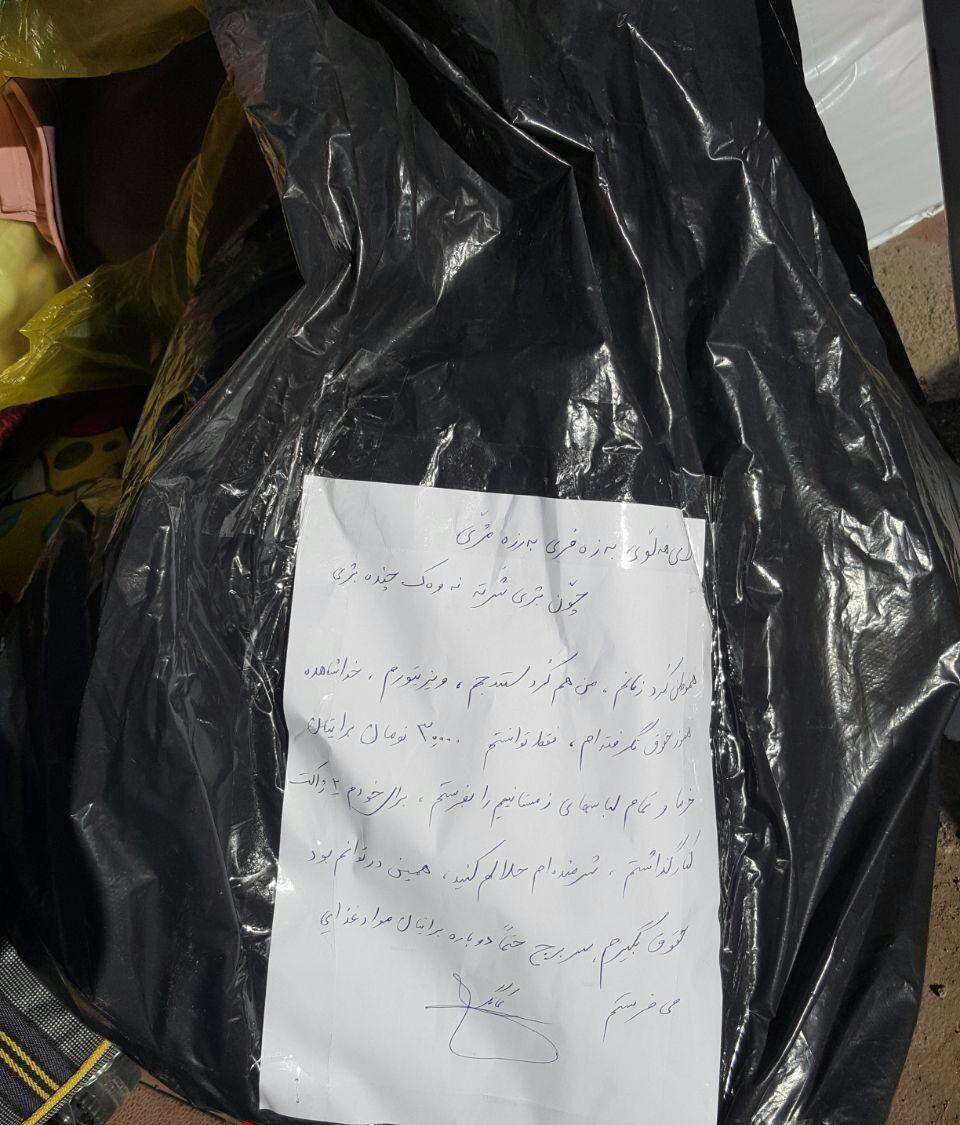 هەڵۆی بەرزەفڕی بەرزە مژی
چۆن بژی شەرتە نەوەک چەندە بژی
هموطن کرد زبانم، من هم کرد سنندجم، ویزیتورم، خدا شاهده
هنوز حقوق نگرفته‌ام، فقط توانستم ۳۰،۰۰۰ تومان برایتان
خرما و تمام لباسهای زمستانیم را بفرستم، برای خودم ۲ ژاکت
کنار گذاشتم، شرمنده‌ام حلالم کنید، همین در توانم بود
حقوق بگیرم سر برج حتماً دوباره برایتان مواد غذایی
می‌فرستم